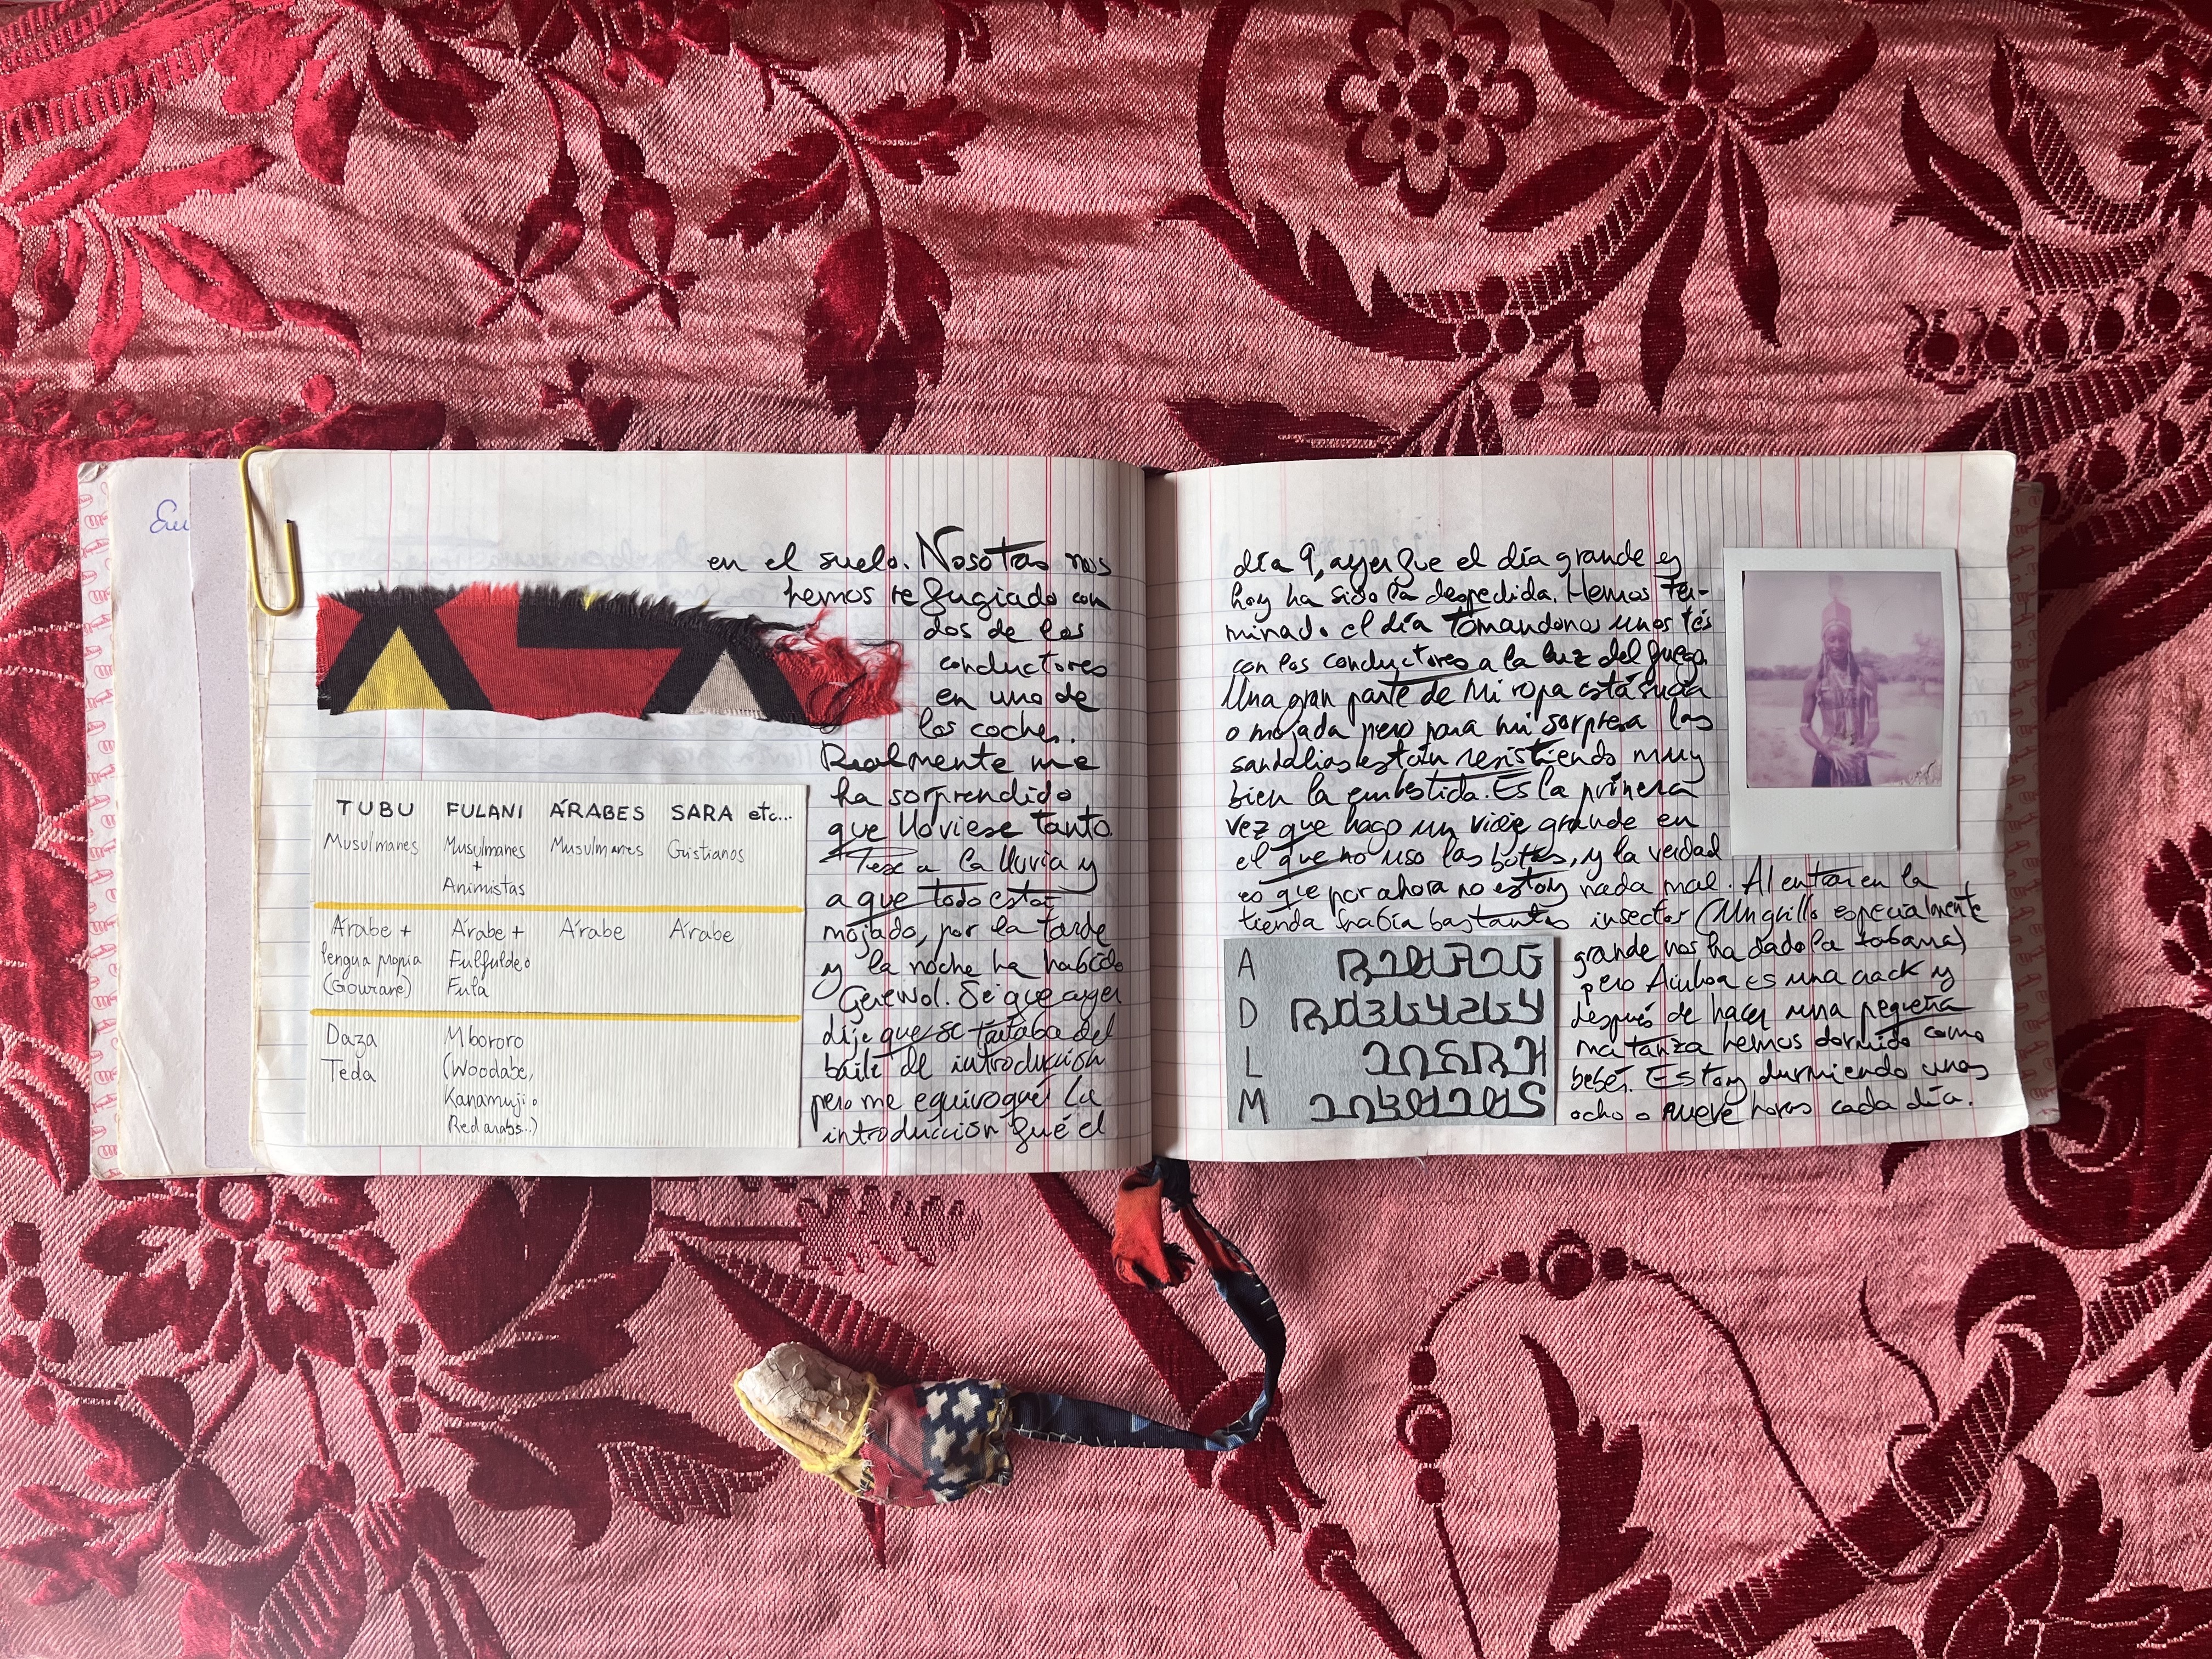 Eu
en el suelo. Nosotras nos
hemos refugiado con
dos de los
conductores
en uno de
los coches.
Realmente me
ha sorprendido
que lloviese tanto.
Pese a la lluvia y
a que todo está
mojado, por la tarde
y la noche ha habido
Gerewol. Sé que ayer
dije que se trataba del
baile de introducción
pero me equivoqué. La
introducción fué el
TUBU FULANI ÁRABES SARA etc...
Musulmanes Musulmanes + Animistas Musulmanes Cristianos
Árabe + lengua propia (Gourane) Árabe + Fulfulde o Fula Árabe Árabe
Daza Teda Mbororo (Woodabe, Kanamuji o Red arabs..)
día 9, ayer fue el día grande y
hoy ha sido la despedida. Hemos ter-
minado el día tomandonos unos tés
con los conductores a la luz del fuego.
Una gran parte de mi ropa está sucia
o mojada pero para mi sorpresa las
sandalias están resistiendo muy
bien la embestida. Es la primera
vez que hago un viaje grande en
el que no uso las botas, y la verdad
es que por ahora no estoy nada mal. Al entrar en la
tienda había bastantes insectos (Un grillo especialmente
grande nos ha dado la tabarra)
pero Ainhoa es una crack y
después de hacer una pequeña
matanza hemos dormido como
bebés. Estoy durmiendo unas
ocho o nueve horas cada día.
A
D
L
M